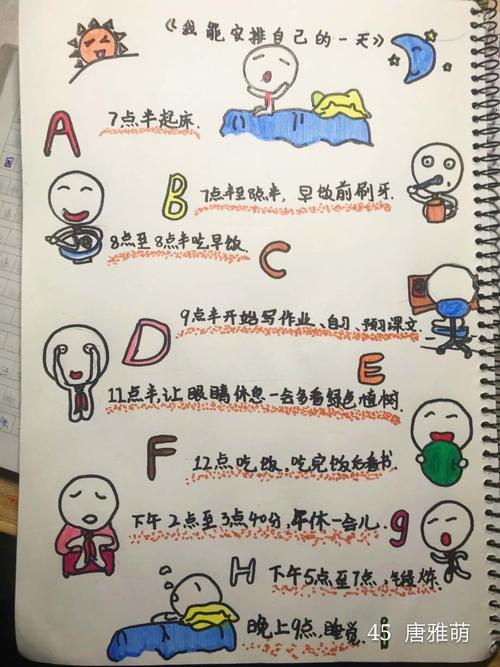 《我能安排自己的一天》
A 7点半起床.
B 7点半至8点半，早饭前刷牙.
8点至8点半吃早饭. C
D 9点半开始写作业、自习、预习课文.
E
11点半,让眼睛休息一会多看绿色植树.
F 12点吃饭，吃完饭后看书.
下午2点至3点40分，午休一会儿. g
H 下午5点至7点，锻炼.
晚上9点,睡觉.
45 唐雅萌